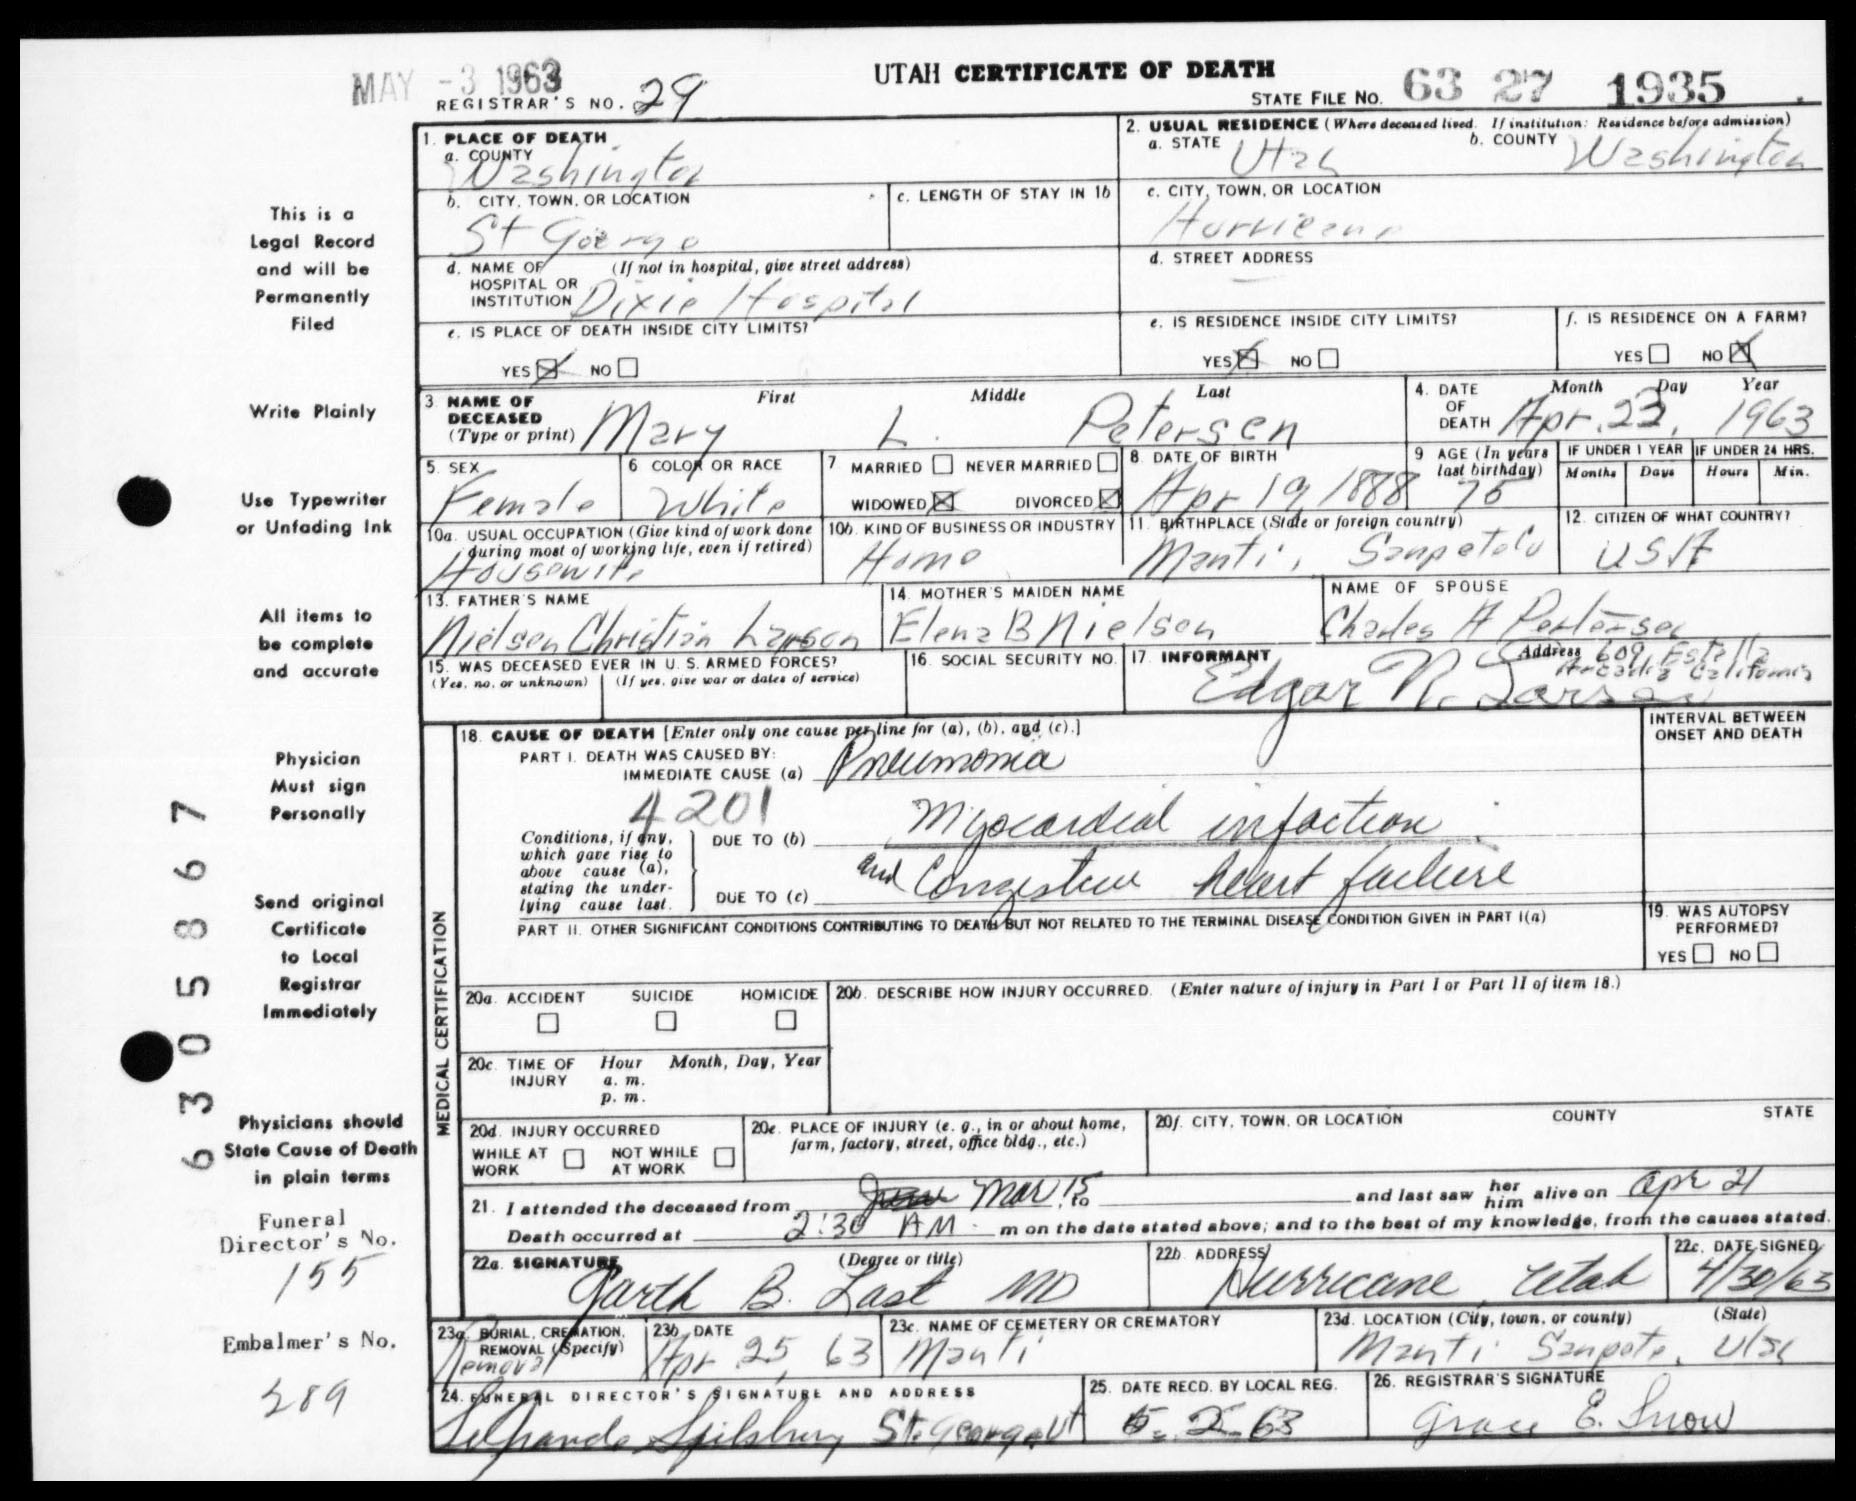 MAY -3 1963
UTAH CERTIFICATE OF DEATH
REGISTRAR'S NO. 29
STATE FILE NO. 63 27 1935
1. PLACE OF DEATH
a. COUNTY
Washington
2. USUAL RESIDENCE (Where deceased lived. If institution: Residence before admission)
a. STATE Utah
b. COUNTY Washington
b. CITY, TOWN, OR LOCATION
St George
c. LENGTH OF STAY IN 1b
c. CITY, TOWN, OR LOCATION
Hurricane
d. NAME OF (If not in hospital, give street address)
HOSPITAL OR
INSTITUTION Dixie Hospital
d. STREET ADDRESS
e. IS PLACE OF DEATH INSIDE CITY LIMITS?
YES ☒ NO ☐
e. IS RESIDENCE INSIDE CITY LIMITS?
YES ☒ NO ☐
f. IS RESIDENCE ON A FARM?
YES ☐ NO ☒
3. NAME OF DECEASED
(Type or print)
First Middle Last
Mary L. Petersen
4. DATE OF DEATH
Month Day Year
Apr. 23, 1963
5. SEX
Female
6 COLOR OR RACE
White
7 MARRIED ☐ NEVER MARRIED ☐
WIDOWED ☒ DIVORCED ☒
8. DATE OF BIRTH
Apr 19, 1888
9 AGE (In years last birthday)
75
IF UNDER 1 YEAR
Months Days
IF UNDER 24 HRS.
Hours Min.
10a. USUAL OCCUPATION (Give kind of work done
during most of working life, even if retired)
Housewife
10b. KIND OF BUSINESS OR INDUSTRY
Home
11. BIRTHPLACE (State or foreign country)
Manti, Sanpete
12. CITIZEN OF WHAT COUNTRY?
USA
13. FATHER'S NAME
Nielsen Christian Larson
14. MOTHER'S MAIDEN NAME
Elena B Nielson
NAME OF SPOUSE
Charles A Petersen
15. WAS DECEASED EVER IN U. S. ARMED FORCES?
(Yes, no, or unknown) (If yes, give war or dates of service)
16. SOCIAL SECURITY NO.
17. INFORMANT
Edgar N. Larsen
Address 609 Estella
Arcadia California
18. CAUSE OF DEATH [Enter only one cause per line for (a), (b), and (c).]
INTERVAL BETWEEN
ONSET AND DEATH
PART I. DEATH WAS CAUSED BY:
IMMEDIATE CAUSE (a) Pneumonia
4201
Conditions, if any,
which gave rise to
above cause (a),
stating the under-
lying cause last.
DUE TO (b) Myocardial infaction
DUE TO (c) and Congestive heart failure
PART II. OTHER SIGNIFICANT CONDITIONS CONTRIBUTING TO DEATH BUT NOT RELATED TO THE TERMINAL DISEASE CONDITION GIVEN IN PART I(a)
19. WAS AUTOPSY
PERFORMED?
YES ☐ NO ☐
20a. ACCIDENT SUICIDE HOMICIDE
☐ ☐ ☐
20b. DESCRIBE HOW INJURY OCCURRED. (Enter nature of injury in Part I or Part II of item 18.)
20c. TIME OF INJURY
Hour Month, Day, Year
a. m.
p. m.
20d. INJURY OCCURRED
WHILE AT WORK ☐ NOT WHILE AT WORK ☐
20e. PLACE OF INJURY (e. g., in or about home,
farm, factory, street, office bldg., etc.)
20f. CITY, TOWN, OR LOCATION COUNTY STATE
21. I attended the deceased from Mar 15, to and last saw her him alive on Apr 21
Death occurred at 2:30 AM m on the date stated above; and to the best of my knowledge, from the causes stated.
22a. SIGNATURE (Degree or title)
Garth B. Last MD
22b. ADDRESS
Hurricane, Utah
22c. DATE SIGNED
4/30/63
23a. BURIAL, CREMATION,
REMOVAL (Specify)
Removal
23b. DATE
Apr 25, 63
23c. NAME OF CEMETERY OR CREMATORY
Manti
23d. LOCATION (City, town, or county) (State)
Manti Sanpete, Utah
24. FUNERAL DIRECTOR'S SIGNATURE AND ADDRESS
Spilsbury St. George Ut
25. DATE RECD. BY LOCAL REG.
5-2-63
26. REGISTRAR'S SIGNATURE
Grace E. Snow
MEDICAL CERTIFICATION
This is a
Legal Record
and will be
Permanently
Filed
Write Plainly
Use Typewriter
or Unfading Ink
All items to
be complete
and accurate
Physician
Must sign
Personally
Send original
Certificate
to Local
Registrar
Immediately
Physicians should
State Cause of Death
in plain terms
Funeral
Director's No.
155
Embalmer's No.
289
63058867